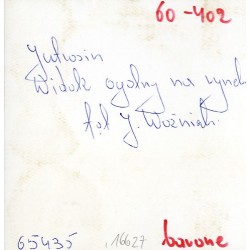 60-402
Jutrosin
Widok ogólny na rynek
fot J. Woźniak
65435
16627
barwne